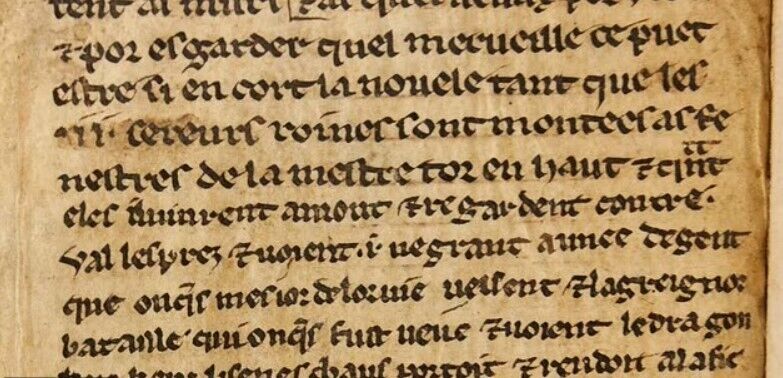 ⁊ por esgarder quel merueille ce puet
estre si en cort la nouele tant que les
·ii· sereurs roines sont montees as fe
nestres de la mestre tor en haut ⁊ qͣnt
eles i uinrent amont ⁊ regardent contre·
ual les prez ⁊ uoient ·i· ne grant aunee de gent
que onq̃s mes ior de lor uie ueissent ⁊ la greignor
bataille qui onq̃s fust ueue ⁊ uoient le dragon